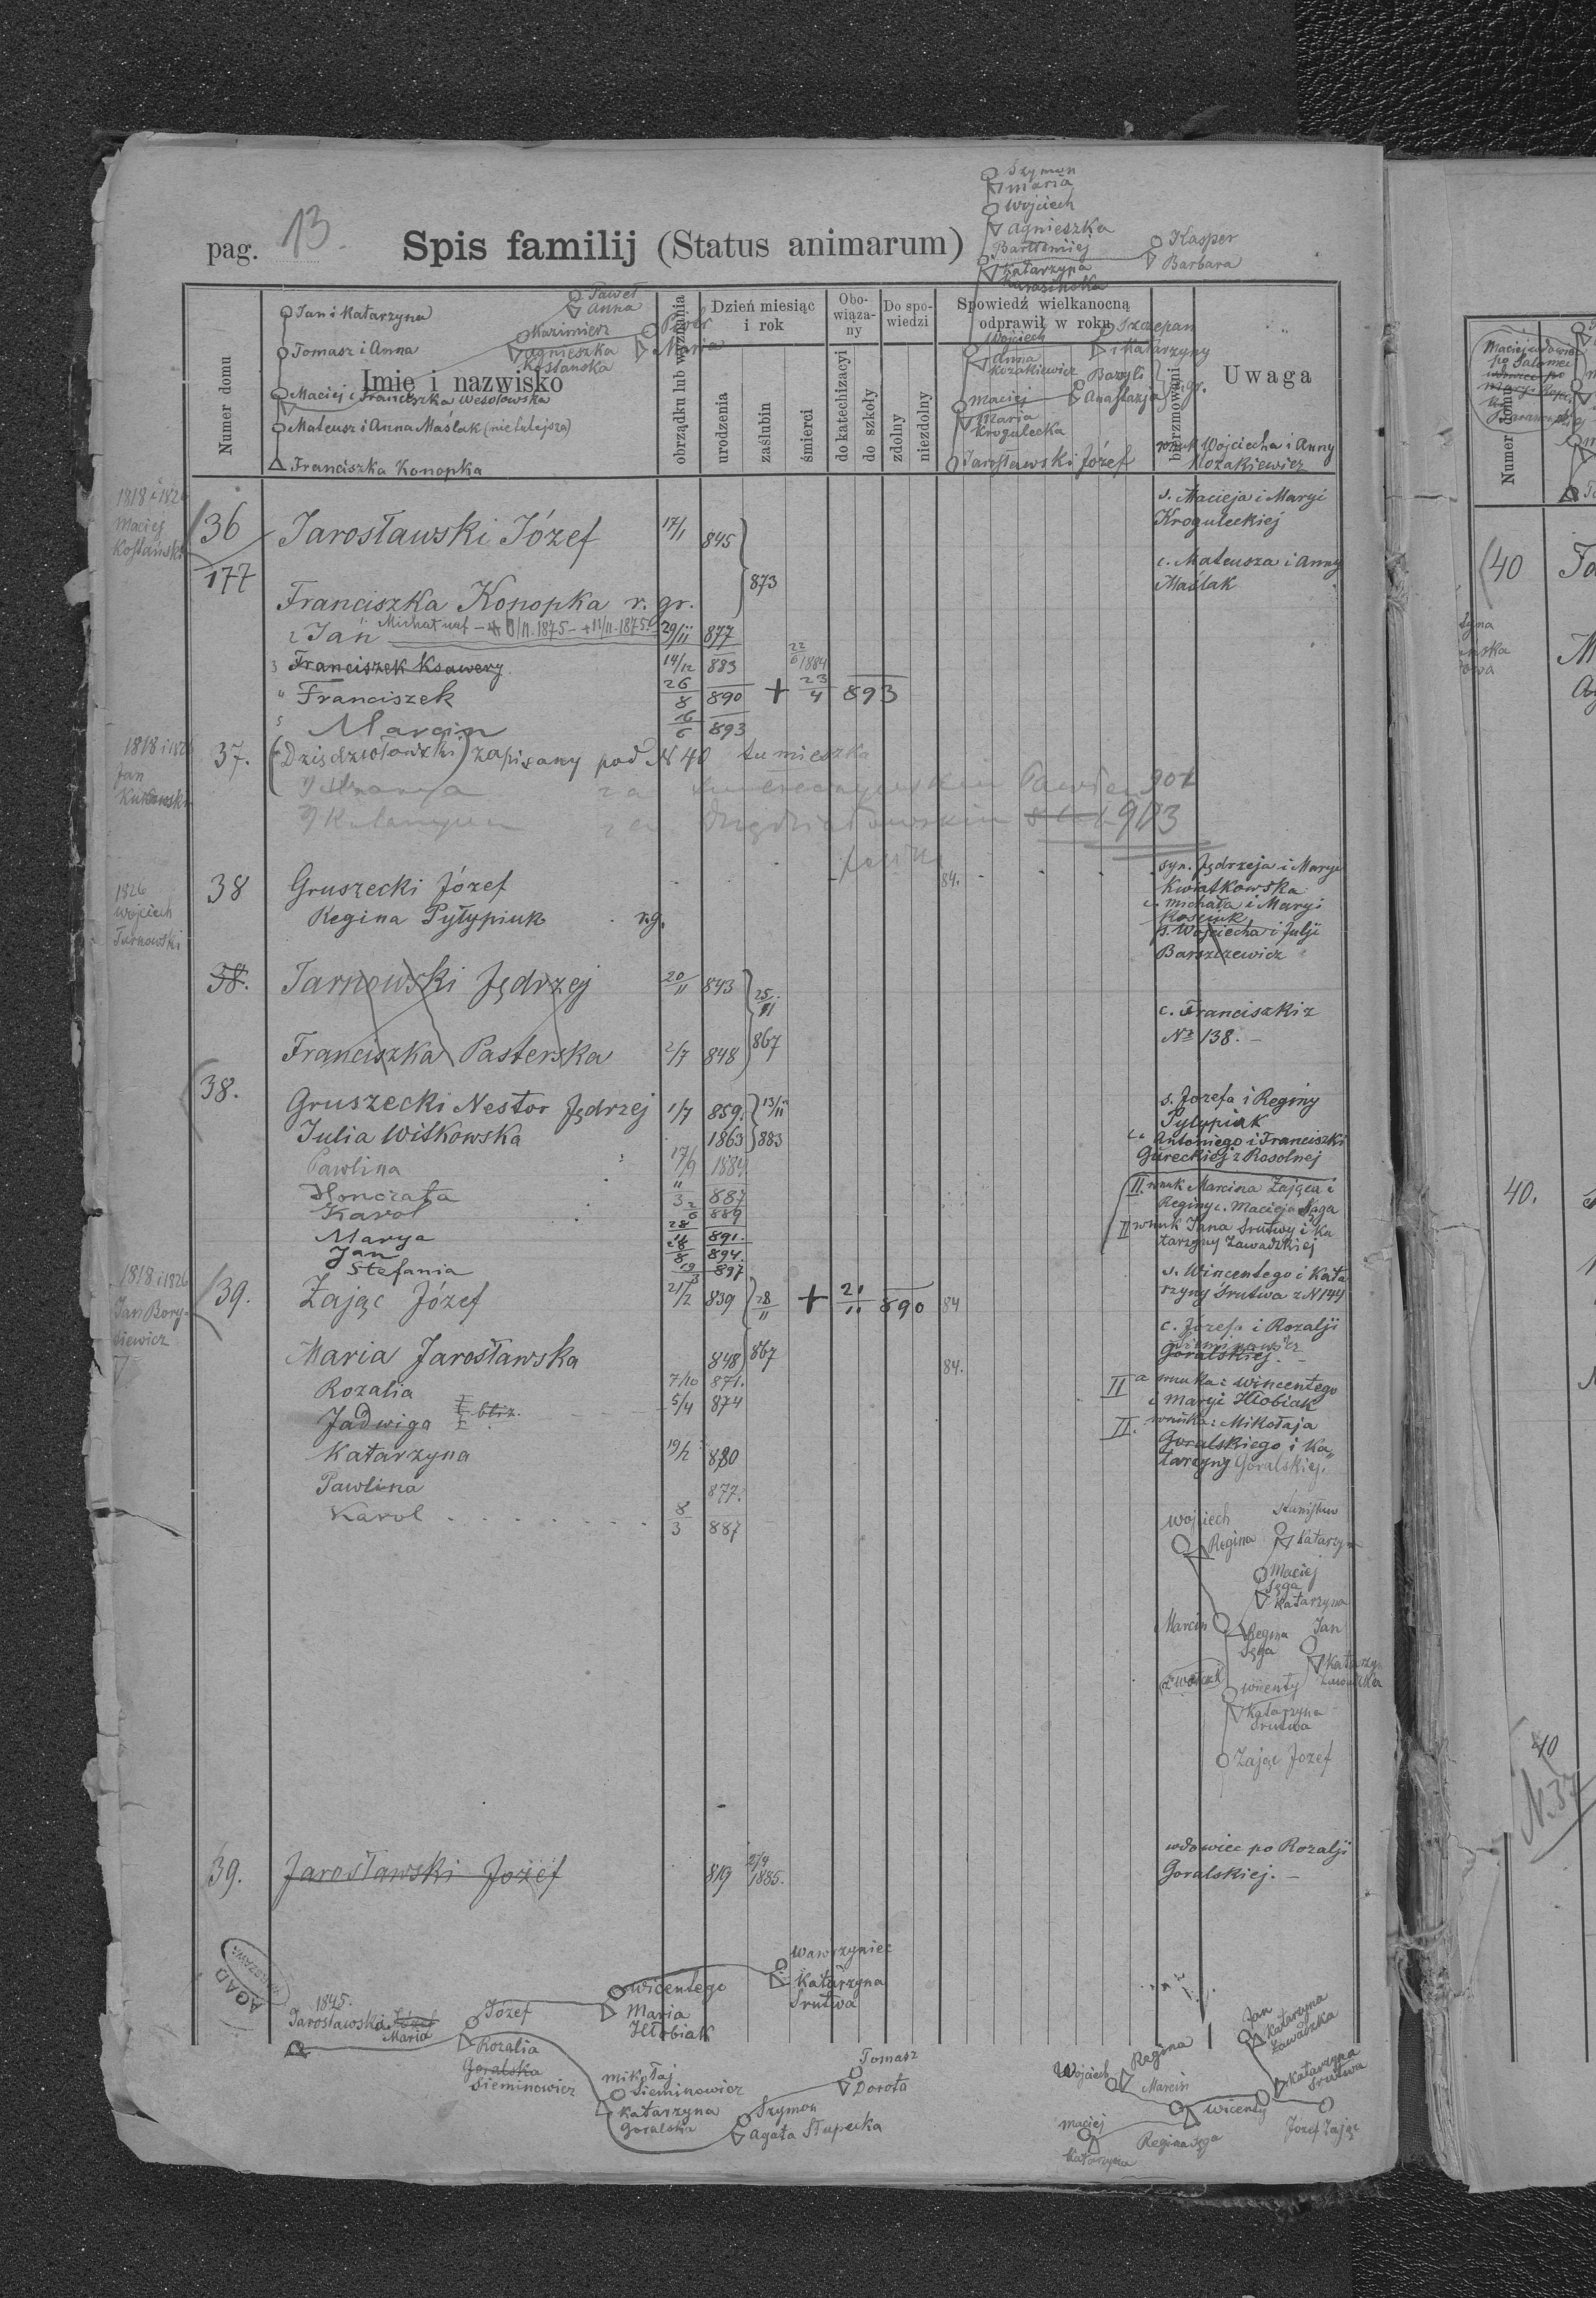 pag. 13.
Spis familij (Status animarum)
Szymon
Maria
Wojciech
Agnieszka
Bartłomiej
Katarzyna
Kasper
Barbara
Numer domu
Imię i nazwisko
obrządku lub wyznania
Dzień miesiąc i rok
urodzenia
zaślubin
śmierci
Obowiązany
do katechizacyi
do szkoły
Do spowiedzi
zdolny
niezdolny
Spowiedź wielkanocną
odprawił w roku
bierzmowani
Uwaga
Jan i Katarzyna
Tomasz i Anna
Maciej i Franciszka Wesołowska
Mateusz i Anna Maślak (nietutejsza)
Franciszka Konopka
Paweł
Anna
Kazimierz
Agnieszka
Kostańska
Piotr
Maria
Wojciech
Anna
Kozakiewicz
Szczepan
i Katarzyny
Bazyli
Anastazja
gr.
Maciej
Maria
Krogulecka
Jarosławski Józef
wnuk Wojciecha i Anny
Kozakiewicz
1818 i 1826
Maciej
36
177
Jarosławski Józef 17/1 845
873
s. Macieja i Maryi
Kroguleckiej
c. Mateusza i Anny
Maślak
Franciszka Konopka r. gr.
2 Jan 29/11 877
3 Franciszek Ksawery 14/12 883 22/6 1884
" Franciszek 26/8 890 + 23/4 893
5 Marcin 16/6 893
1818 i 1826
Jan
37. (Dziędziołowski) zapisany pod N 40 tu mieszka
901
903
1826
Wojciech
Tarnowski
38 Gruszecki Józef 84.
Regina Pyłypiuk r.g.
syn. Jędrzeja i Maryi
Kwiatkowska
c. Michała i Maryi
s. Wojciecha i Julji
Barszczewicz
38. Tarnowski Jędrzej 20/11 843
25/11
867
Franciszka Pasterska 2/7 848
c. Franciszki z
№ 138. -
38.
Gruszecki Nestor Jędrzej 1/7 859. 13/11
Julia Witkowska 1863 883
Pawlina 17/9 1884
Honorata 887
Karol 2/6 889
Marya 28/11 891.
Jan 28/8 894.
Stefania 19/3 897
s. Józefa i Reginy
Pyłypiak
c. Antoniego i Franciszki
Góreckiej z Rosolnej
II. wnuk Marcina Zająca i
Reginy c. Macieja Sęga
II wnuk Jana Srutwy i Ka
tarzyny Zawadzkiej
1818 i 1826
Jan Bory-
siewicz
39. Zając Józef 21/2 839 28/11 + 21/11 890 84
867
Maria Jarosławska 848 84.
s. Wincentego i Kata
rzyny Srutwa z N 144
c. Józefa i Rozalji
Siminowicz
Goralskiej. -
Rozalia 7/10 871.
Jadwiga 5/4 874
bliź.
Katarzyna 19/2 880
Pawlina 877.
Karol . . . . . . . . 8/3 887
II a wnuka: Wincentego
i Maryi Hłobiak
II. wnuka: Mikołaja
Goralskiego i Ka„
tarzyny Goralskiej.
Wojciech
Regina
Stanisław
Katarzyna
Maciej
Sęga
Katarzyna
Marcin
Regina
Sęga
Jan
Katarzyna
Wicenty
Katarzyna
Srutwa
Zając Józef
39. Jarosławski Józef 819 27/4 1885.
wdowiec po Rozalji
Goralskiej. -
AGAD
WARSZAWA
1845.
Jarosławska Józef
Maria
Józef
Rozalia
Goralska
Sieminowicz
Wicentego
Maria
Hłobiak
Wawrzyniec
Katarzyna
Srutwa
Mikołaj
Sieminowicz
Katarzyna
Goralska
Szymon
Agata Słupecka
Tomasz
Dorota
Wojciech
Regina
Marcin
Maciej
Katarzyna
Regina Sęga
Wicenty
Jan
Katarzyna
Zawadzka
Katarzyna
Srutwa
Józef Zając
Numer domu
40
40.
40
N. 37